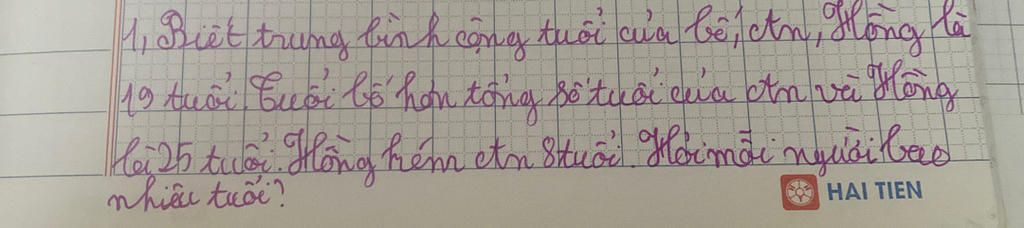 1, Biết trung bình cộng tuổi của bố, An, Hồng là
19 tuổi. Tuổi bố hơn tổng số tuổi của An và Hồng
là 25 tuổi. Hồng kém An 8 tuổi. Hỏi mỗi người bao
nhiêu tuổi?
HAI TIEN